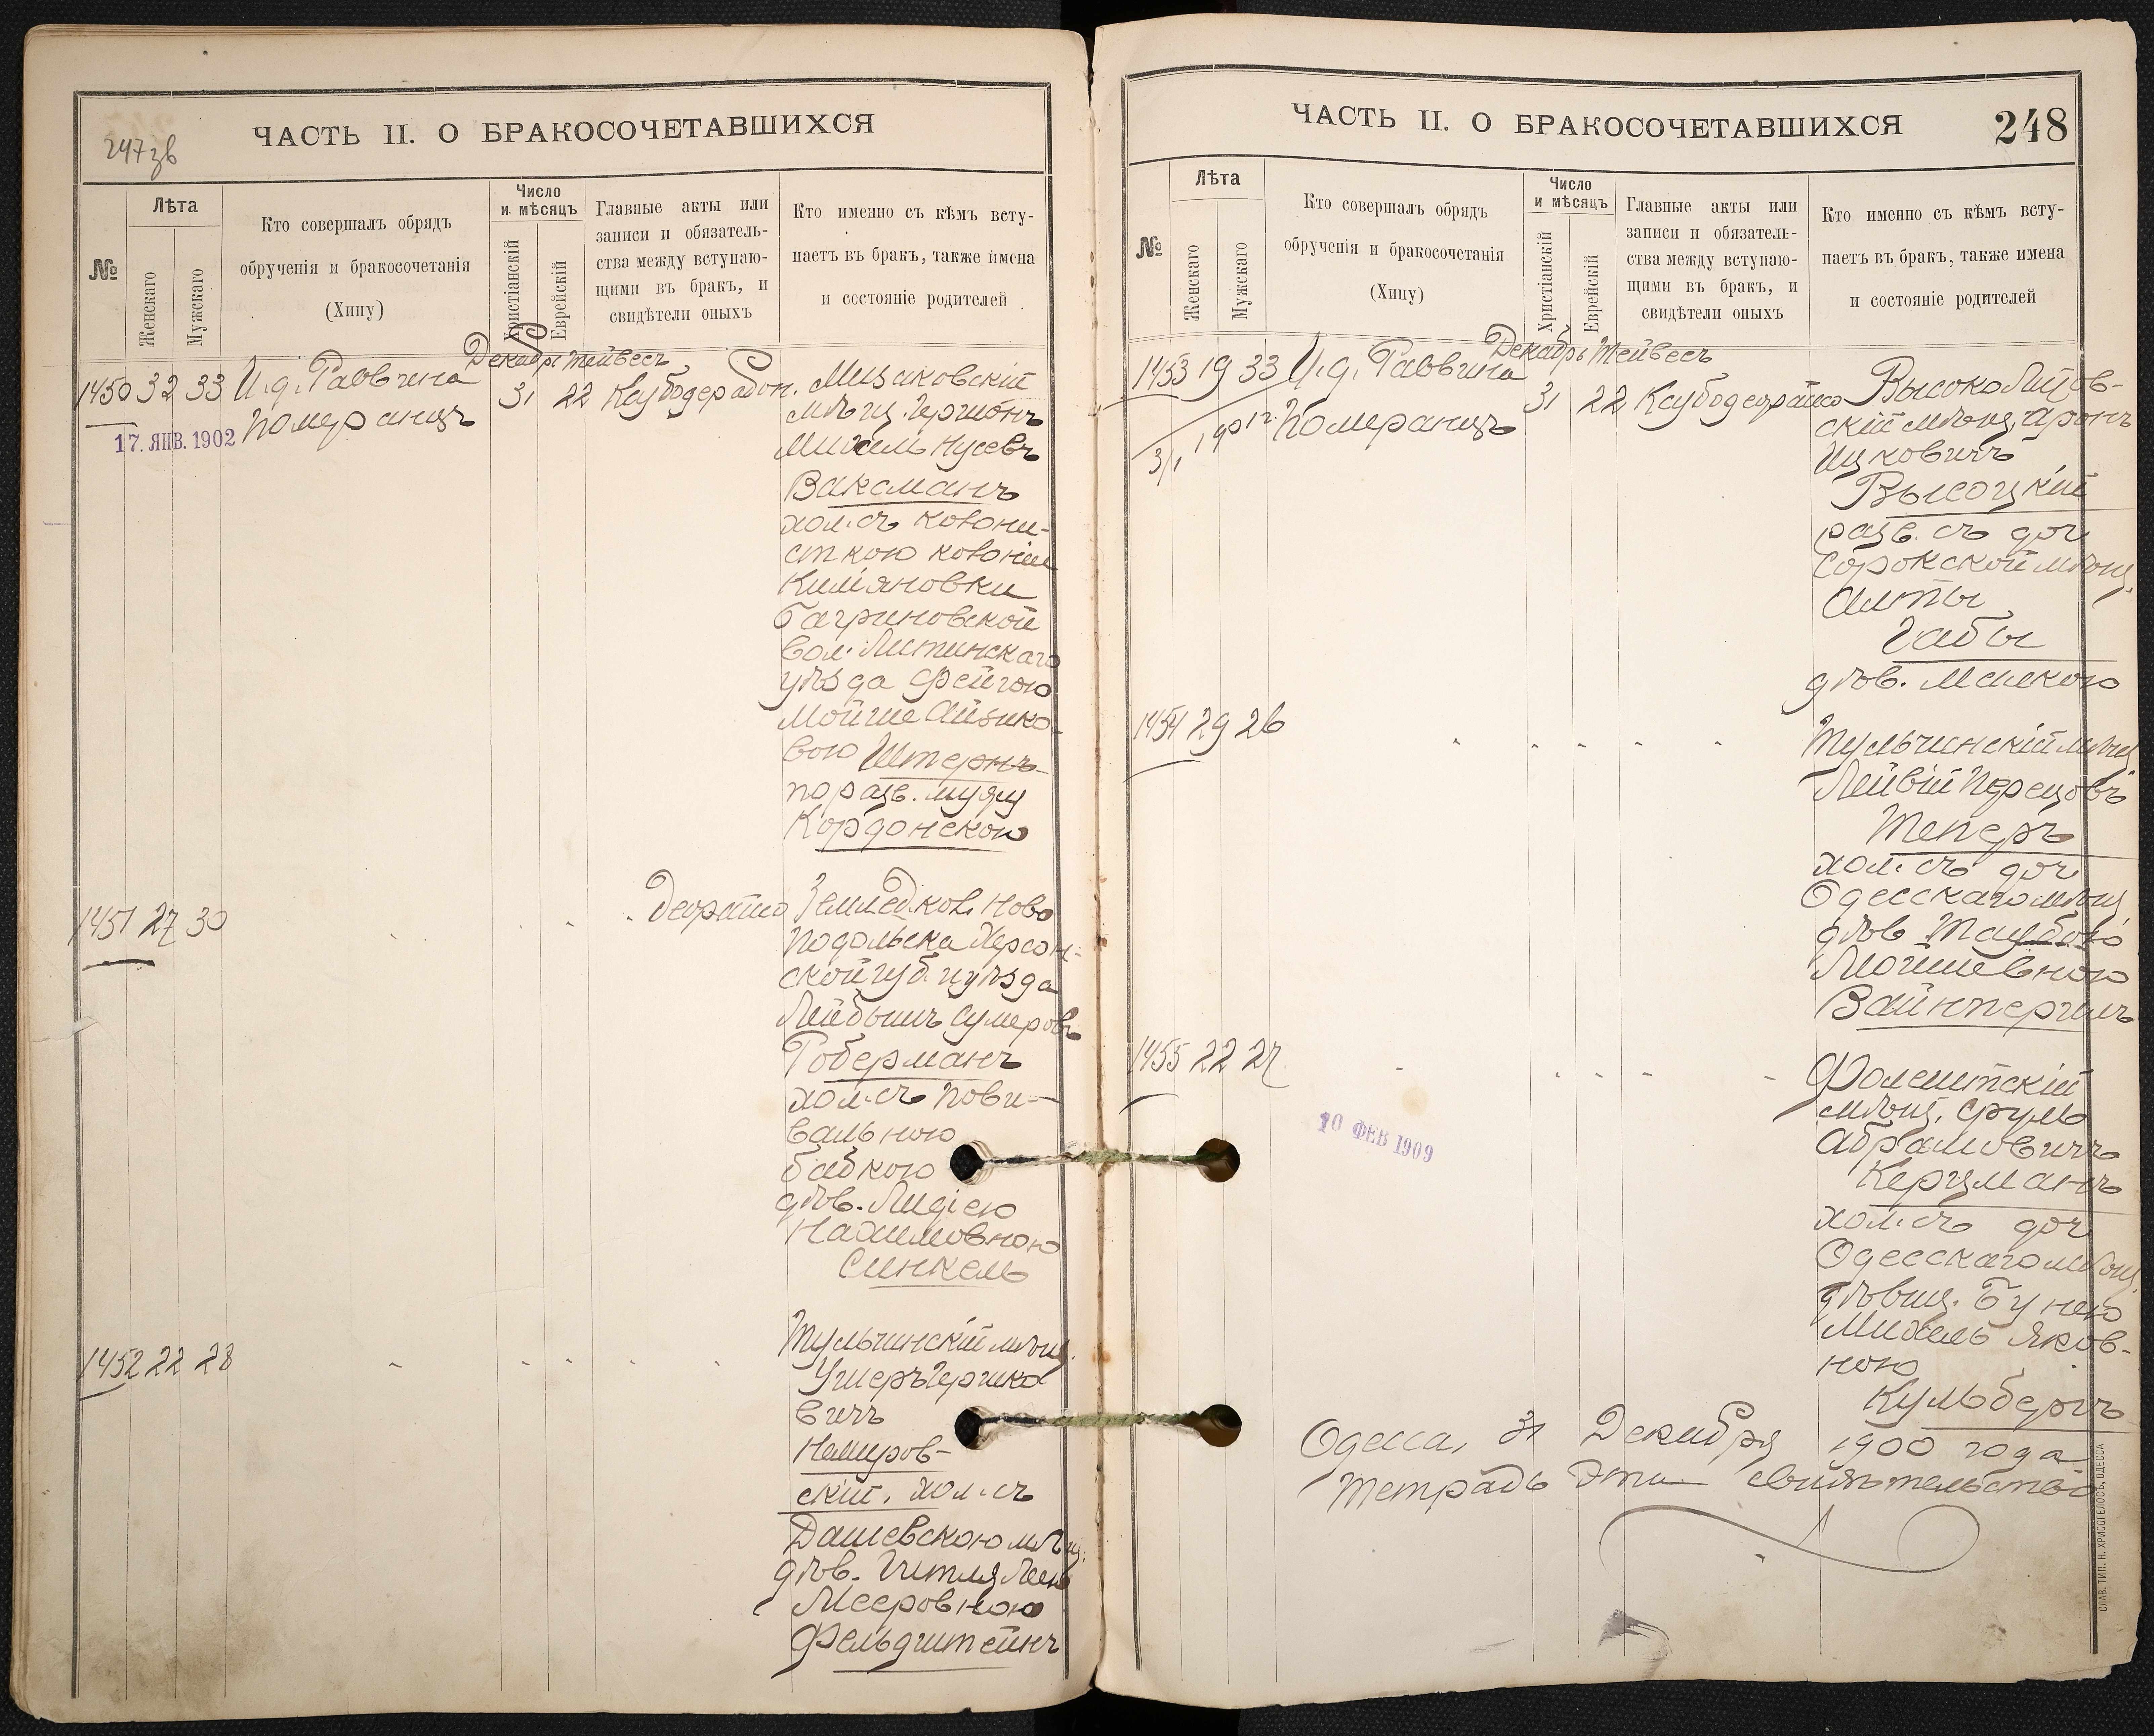 247зв
ЧАСТЬ II. О БРАКОСОЧЕТАВШИХСЯ
№
Лѣта
Женскаго
Мужскаго
Кто совершалъ обрядъ
обрученія и бракосочетанія
(Хипу)
Число
и мѣсяцъ
Христіанскій
Еврейскій
Главные акты или
записи и обязатель-
ства между вступаю-
щими въ бракъ, и
свидѣтели оныхъ
Кто именно съ кѣмъ всту-
паетъ въ бракъ, также имена
и состояніе родителей
Декабрь Тейвесъ
1450 32 33 И.д. Раввина
Померанцъ
31 22
17. ЯНВ. 1902
мѣщ. Гершонъ
Михель Нусевъ
Ваксманъ
хол. съ колони-
сткою колоніи
Кишяновки
Багриновской
Вол. Литинскаго
уѣзда Фейгою
Мойше Айзико-
вою Штернъ
по разв. мужу
Кордонскою
1451 27 30
Землед. кол. Ново
Подольска Херсон-
ской губ. и уѣзда
Лейбышъ Сумеровъ
Роберманъ
хол. съ пови-
вальною
бабкою
дѣв. Лидіею
Нахимовною
Синкель
1452 22 28
Тульчинскій мѣщ.
Ушеръ Гершко
вичъ
Немиров-
скій, хол. съ
Дашевскою мѣщ.
дѣв. Гитля Лею
Мееровною
Фельдштейнъ
ЧАСТЬ II. О БРАКОСОЧЕТАВШИХСЯ
248
№
Лѣта
Женскаго
Мужскаго
Кто совершалъ обрядъ
обрученія и бракосочетанія
(Хипу)
Число
и мѣсяцъ
Христіанскій
Еврейскій
Главные акты или
записи и обязатель-
ства между вступаю-
щими въ бракъ, и
свидѣтели оныхъ
Кто именно съ кѣмъ всту-
паетъ въ бракъ, также имена
и состояніе родителей
Декабрь Тейвесъ
1453 19 33 И.д. Раввина
Померанцъ
31 22
Высоко Литов-
скій мѣщ. Аронъ
Ицковичъ
Высоцкій
разв. съ доч
Сорокской мѣщ.
Габы
дѣв. Малкою
1454 29 26
Тульчинскій мѣщ
Лейвій Перецовъ
Теперъ
хол. съ доч
Одесскаго мѣщ.
дѣв. Таубою
Мошевною
Вайнпергиль
1455 22 27
10 ФЕВ 1909
Фалештскій
мѣщ. Сруль
Абрамовичъ
Керцманъ
хол. съ доч
Одесскаго мѣщ.
дѣвиц. Бунею
Михель Яков-
ною
Кульбергъ
Одесса, 31 Декабря 1900 года
СЛАВ. ТИП. Н. ХРИСОГЕЛОСЪ, ОДЕССА